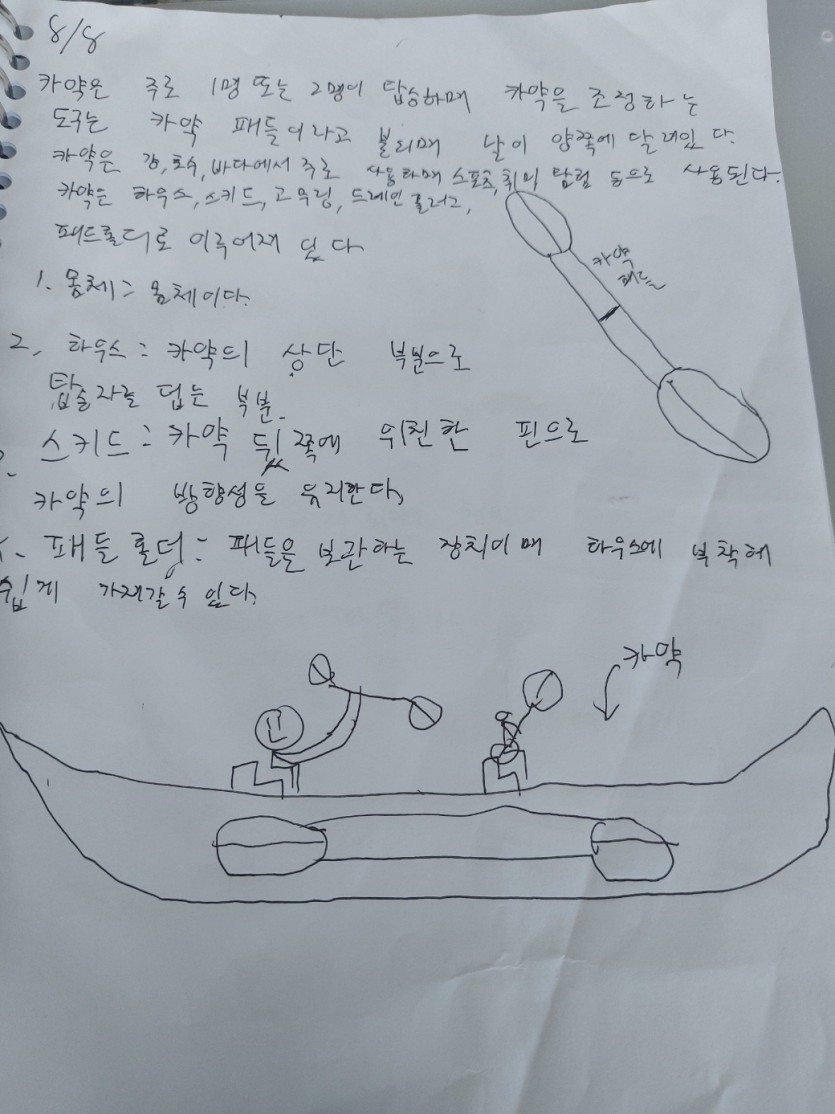 8/8
카약은 주로 1명 또는 2명이 탑승하매 카약을 조정하는
도구는 카약 패들이라고 불리매 날이 양쪽에 달려있다.
카약은 강, 호수, 바다에서 주로 사용하매 스포츠, 취미 탐험 등으로 사용된다.
카약은 하우스, 스키드, 고무링, 드레인 플러그,
패드홀디로 이루어재 있다
카약
패들
1. 몸체: 몸체이다.
2. 하우스: 카약의 상단 부분으로
탑승자를 덥는 부분.
스키드: 카약 뒤쪽에 위친한 핀으로
카약의 방향성을 유지한다,
패들홀더: 패들을 보관하는 장치이매 하우스에 부착해
쉽게 가재갈수 있다.
카약